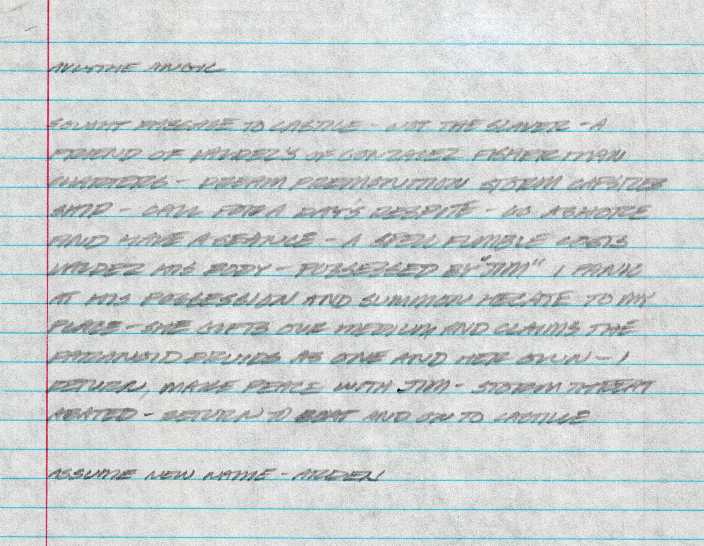 SOUGHT PASSAGE TO CASTILE - NOT THE SLAVER - A
FRIEND OF VALDEZ'S OF GONZALEZ FISHERMAN
CHARTERS - DREAM PREMONITION STORM CAPSIZES
SHIP - CALL FOR A DAY'S RESPITE - GO ASHORE
AND HAVE A SEANCE - A SPELL FUMBLE COSTS
VALDEZ HIS BODY - POSSESSED BY "JIM" I PANIC
AT HIS POSSESSION AND SUMMON HECATE TO MY
PLACE - SHE GIFTS OUR MEDIUM AND CLAIMS THE
DRUIDS AS ONE AND HER OWN - I
RETURN, MAKE PEACE WITH JIM - STORM THREAT
ABATED - RETURN TO BOAT AND ON TO CASTILE
ASSUME NEW NAME - ARDEN